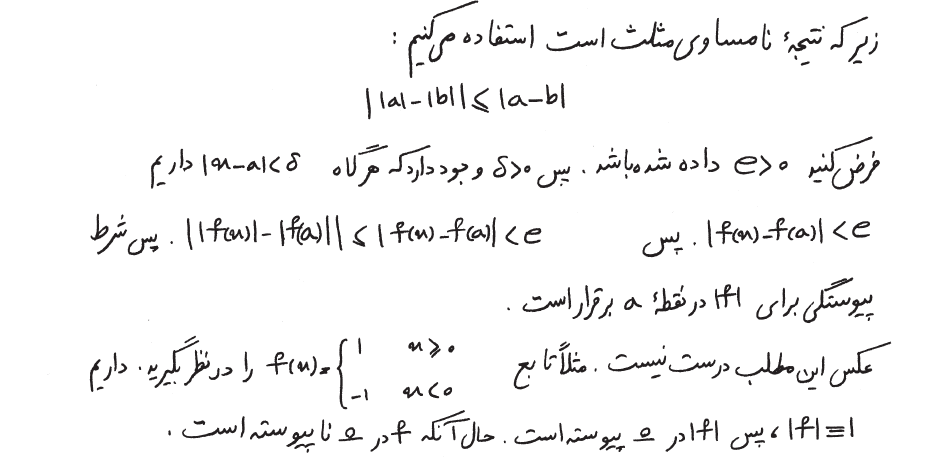 زیر که نتیجهٔ نامساوی مثلث است استفاده می‌کنیم :
||a|-|b|| ≤ |a-b|
فرض کنید e>۰ داده شده باشد . پس δ>۰ وجود دارد که هرگاه |x-a|<δ داریم
|f(x)-f(a)|<e . پس ||f(x)|-|f(a)|| ≤ |f(x)-f(a)|<e . پس شرط
پیوستگی برای |f| در نقطهٔ a برقرار است .
عکس این مطلب درست نیست . مثلاً تابع f(x)={1 x≥۰ -1 x<۰ را در نظر بگیرید . داریم
|f|≡1 ، پس |f| در ۰ پیوسته است . حال آنکه f در ۰ ناپیوسته است .